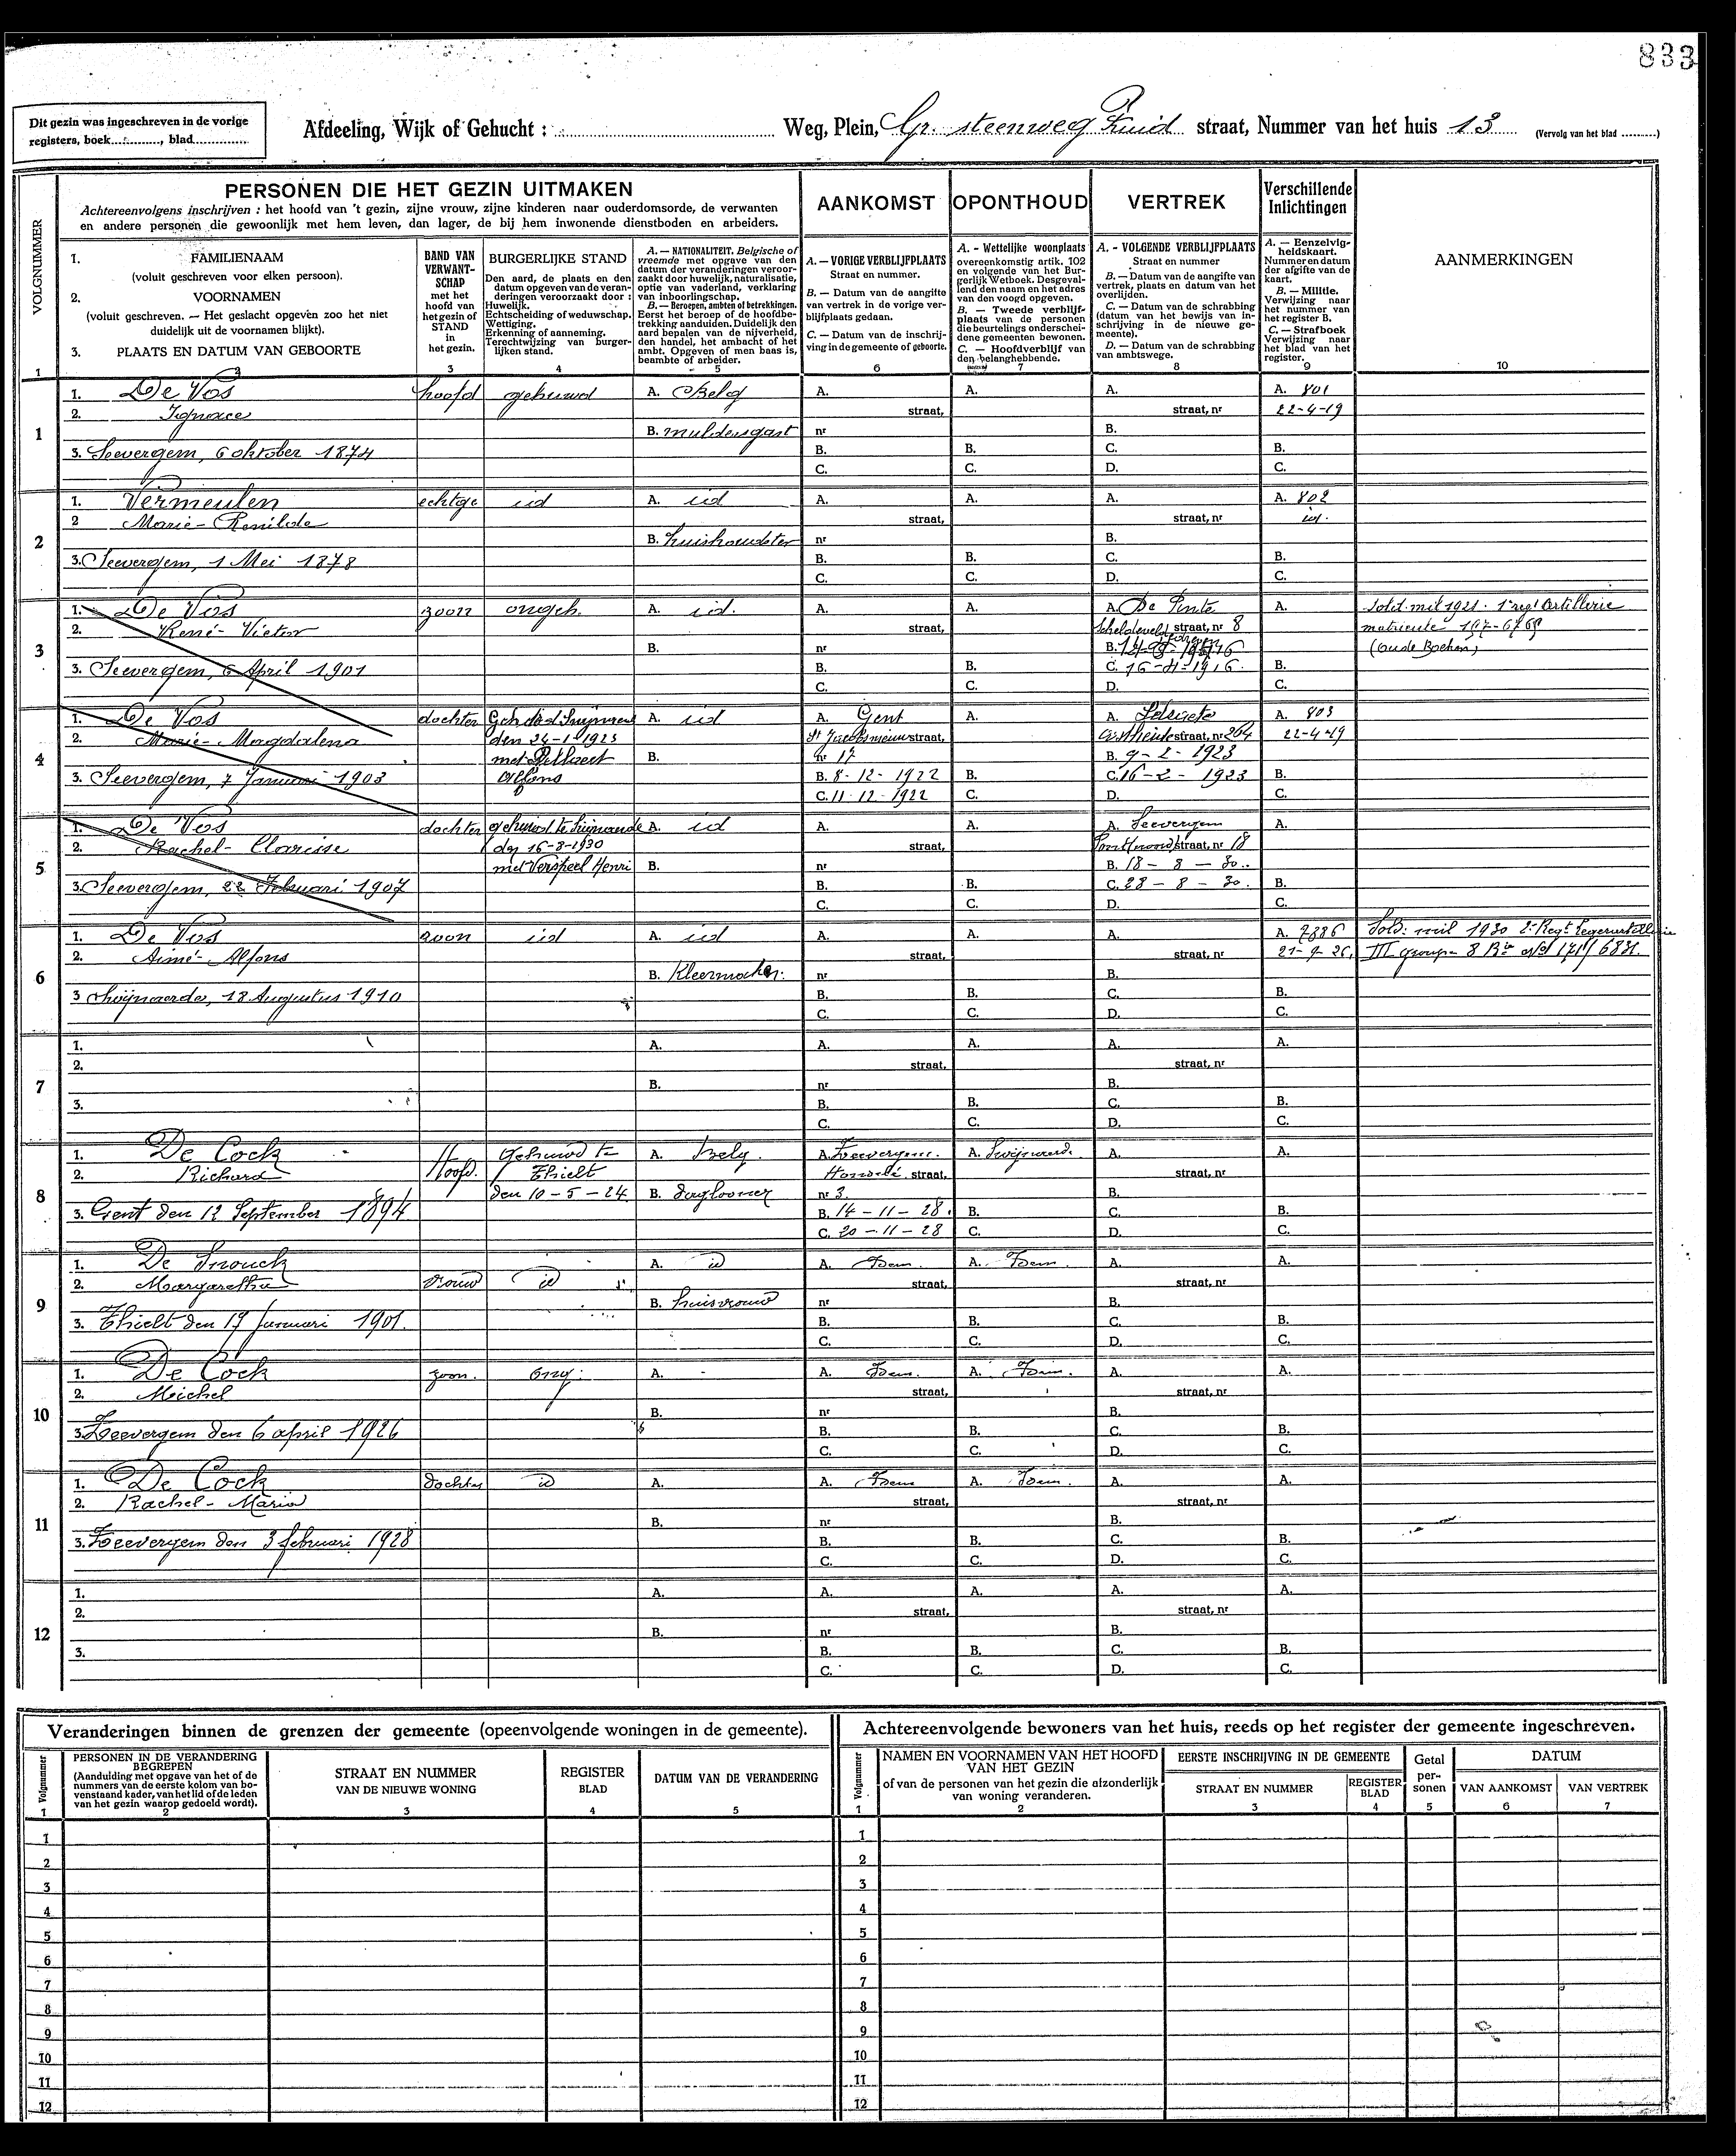 833
Dit gezin was ingeschreven in de vorige
registers, boek..........., blad..............
Afdeeling, Wijk of Gehucht : ........................ Weg, Plein, Gr. steenweg Zuid straat, Nummer van het huis 13 (Vervolg van het blad ..........)
VOLGNUMMER
PERSONEN DIE HET GEZIN UITMAKEN
Achtereenvolgens inschrijven : het hoofd van 't gezin, zijne vrouw, zijne kinderen naar ouderdomsorde, de verwanten
en andere personen die gewoonlijk met hem leven, dan lager, de bij hem inwonende dienstboden en arbeiders.
AANKOMST
OPONTHOUD
VERTREK
Verschillende
Inlichtingen
1. FAMILIENAAM
(voluit geschreven voor elken persoon).
2. VOORNAMEN
(voluit geschreven. — Het geslacht opgeven zoo het niet
duidelijk uit de voornamen blijkt).
3. PLAATS EN DATUM VAN GEBOORTE
BAND VAN
VERWANT-
SCHAP
met het
hoofd van
het gezin of
STAND
in
het gezin.
BURGERLIJKE STAND
Den aard, de plaats en den
datum opgeven van de veran-
deringen veroorzaakt door :
Huwelijk.
Echtscheiding of weduwschap.
Wettiging.
Erkenning of aanneming.
Terechtwijzing van burger-
lijken stand.
A. — NATIONALITEIT. Belgische of
vreemde met opgave van den
datum der veranderingen veroor-
zaakt door huwelijk, naturalisatie,
optie van vaderland, verklaring
van inboorlingschap.
B. — Beroepen, ambten of betrekkingen.
Eerst het beroep of de hoofdbe-
trekking aanduiden. Duidelijk den
aard bepalen van de nijverheid,
den handel, het ambacht of het
ambt. Opgeven of men baas is,
beambte of arbeider.
A. — VORIGE VERBLIJFPLAATS
Straat en nummer.
B. — Datum van de aangifte
van vertrek in de vorige ver-
blijfplaats gedaan.
C. — Datum van de inschrij-
ving in de gemeente of geboorte.
A. - Wettelijke woonplaats
overeenkomstig artik. 102
en volgende van het Bur-
gerlijk Wetboek. Desgeval-
lend den naam en het adres
van den voogd opgeven.
B. — Tweede verblijf-
plaats van de personen
die beurtelings onderschei-
dene gemeenten bewonen.
C. — Hoofdverblijf van
den belanghebbende.
A. - VOLGENDE VERBLIJFPLAATS
Straat en nummer
B. — Datum van de aangifte van
vertrek, plaats en datum van het
overlijden.
C. — Datum van de schrabbing
(datum van het bewijs van in-
schrijving in de nieuwe ge-
meente).
D. — Datum van de schrabbing
van ambtswege.
A. — Eenzelvig-
heidskaart.
Nummer en datum
der afgifte van de
kaart.
B. — Militie.
Verwijzing naar
het nummer van
het register B.
C. — Strafboek
Verwijzing naar
het blad van het
register.
AANMERKINGEN
1 2 3 4 5 6 7 8 9 10
1. De Vos hoofd gehuwd A. Belg A. A. A. A. 801
2. Ignace straat, straat, nr 22-4-19
1 B. muldersgast nr B.
3. Seevergem, 6 oktober 1874 B. B. C. B.
C. C. D. C.
1. Vermeulen echtge id A. id A. A. A. A. 802
2 Marie-Renilde straat, straat, nr id.
2 B. huishoudster nr B.
3. Seevergem, 1 Mei 1878 B. B. C. B.
C. C. D. C.
1. De Vos zoon ongeh. A. id. A. A. A. De Pinte A. Sold. mil 1921. 1e regt Artillerie
2. René-Victor straat, Scheldeveld straat, nr 8 matricule
3 B. nr B.
3. Seevergem, 6 April 1901 B. B. C. B.
C. C. D. C.
1. De Vos dochter A. id A. Gent A. A. Ledeberg A. 803
2. Marie-Magdalena den 24-1-1923 St Jacobsnieuw straat, straat, nr 264 22-4-19
4 met B. nr 17 B. 9-2-1923
3. Seevergem, 7 Januari 1903 Alfons B. 8-12-1922 B. C. 16-2-1923 B.
C. 11-12-1922 C. D. C.
1. De Vos dochter gehuwd te Swijnaerde A. id A. A. A. Seevergem A.
2. Rachel-Clarisse den 16-8-1930 straat, straat, nr 18
5 met Verspeel Henri B. nr B. 18-8-30.
3. Seevergem, 22 Februari 1907 B. B. C. 28-8-30. B.
C. C. D. C.
1. De Vos zoon id A. id A. A. A. A. 7886 Sold: mil 1930 2e Regt Legerartillerie
2. Aimé-Alfons straat, straat, nr 21-9-26. III groupe 8 Bie
6 B. Kleermaker. nr B.
3 Swijnaerde, 18 Augustus 1910 B. B. C. B.
C. C. D. C.
1. A. A. A. A. A.
2. straat, straat, nr
7 B. nr B.
3. B. B. C. B.
C. C. D. C.
1. De Cock Hoofd. Gehuwd te A. belg. A. Zeevergem. A. Swijnaerde. A. A.
2. Richard Thielt straat, straat, nr
8 den 10-5-24. B. daglooner nr 3. B.
3. Gent den 12 September 1894 B. 14-11-28. B. C. B.
C. 20-11-28 C. D. C.
1. De Snouck A. id A. Idem. A. Idem. A. A.
2. Margaretha vrouw id straat, straat, nr
9 B. huisvrouw nr B.
3. Thielt den 17 Januari 1901. B. B. C. B.
C. C. D. C.
1. De Cock zoon. ong. A. - A. Idem. A. Idem. A. A.
2. Michel straat, straat, nr
10 B. nr B.
3. Zeevergem den 6 april 1926 B. B. C. B.
C. C. D. C.
1. De Cock dochter id A. A. Idem A. Idem. A. A.
2. Rachel-Maria straat, straat, nr
11 B. nr B.
3. Zeevergem den 3 februari 1928 B. B. C. B.
C. C. D. C.
1. A. A. A. A. A.
2. straat, straat, nr
12 B. nr B.
3. B. B. C. B.
C. C. D. C.
Veranderingen binnen de grenzen der gemeente (opeenvolgende woningen in de gemeente).
Volgnummer
PERSONEN IN DE VERANDERING
BEGREPEN
(Aanduiding met opgave van het of de
nummers van de eerste kolom van bo-
venstaand kader, van het lid of de leden
van het gezin waarop gedoeld wordt).
STRAAT EN NUMMER
VAN DE NIEUWE WONING
REGISTER
BLAD
DATUM VAN DE VERANDERING
1 2 3 4 5
1
2
3
4
5
6
7
8
9
10
11
12
Achtereenvolgende bewoners van het huis, reeds op het register der gemeente ingeschreven.
Volgnummer
NAMEN EN VOORNAMEN VAN HET HOOFD
VAN HET GEZIN
of van de personen van het gezin die afzonderlijk
van woning veranderen.
EERSTE INSCHRIJVING IN DE GEMEENTE
STRAAT EN NUMMER
REGISTER
BLAD
Getal
per-
sonen
DATUM
VAN AANKOMST
VAN VERTREK
1 2 3 4 5 6 7
1
2
3
4
5
6
7
8
9
10
11
12